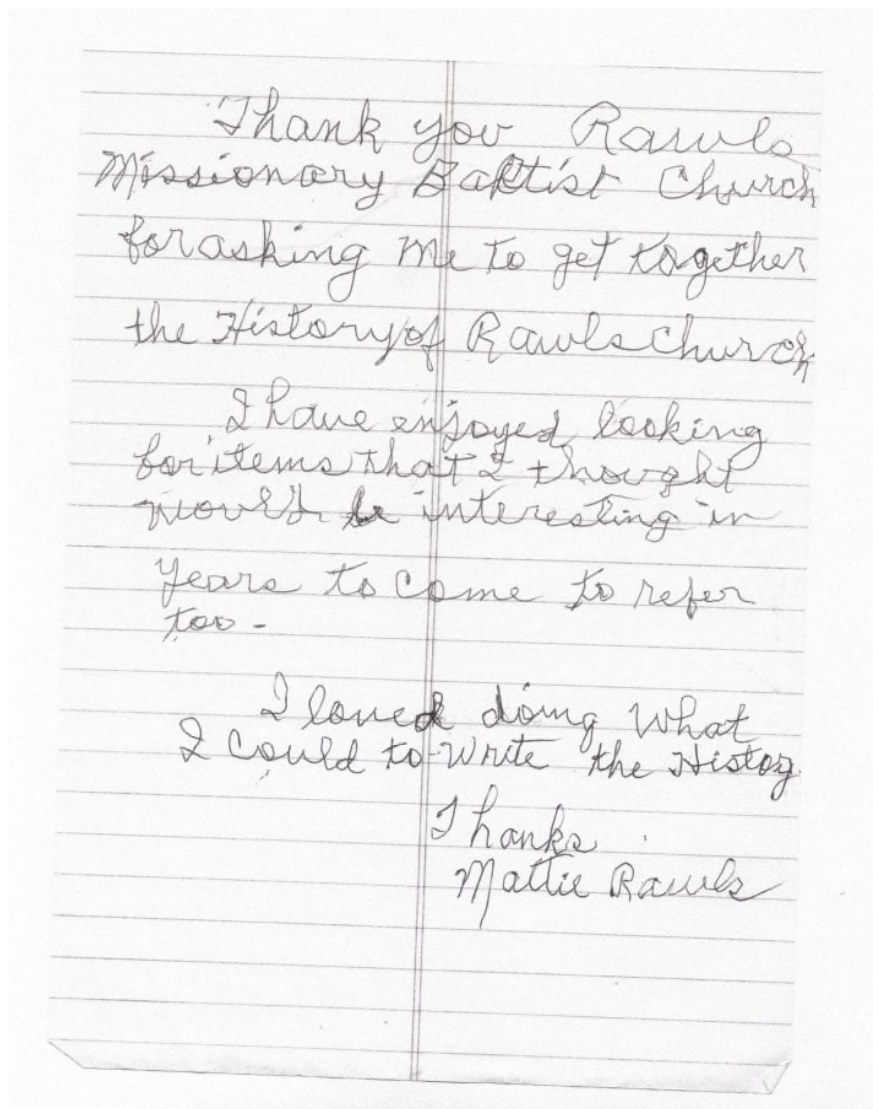 Thank you Rawls
Missionary Baptist Church
for asking me to get together
the History of Rawls Church
I have enjoyed looking
for items that I thought
would be interesting in
years to come to refer
too -
I loved doing what
I could to write the History
Thanks
Mattie Rawls